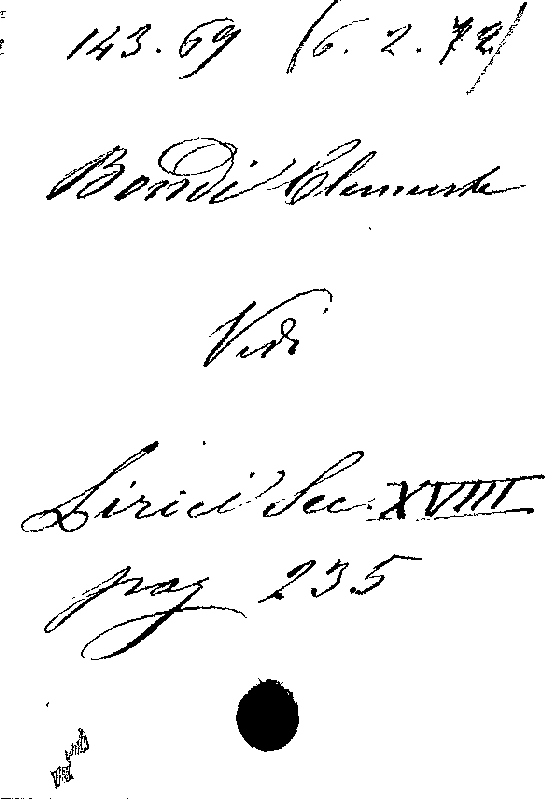 143.69 (6.2.72)
Bondi Clemente
Vedi
Lirici Sec. XVIII
pag 235